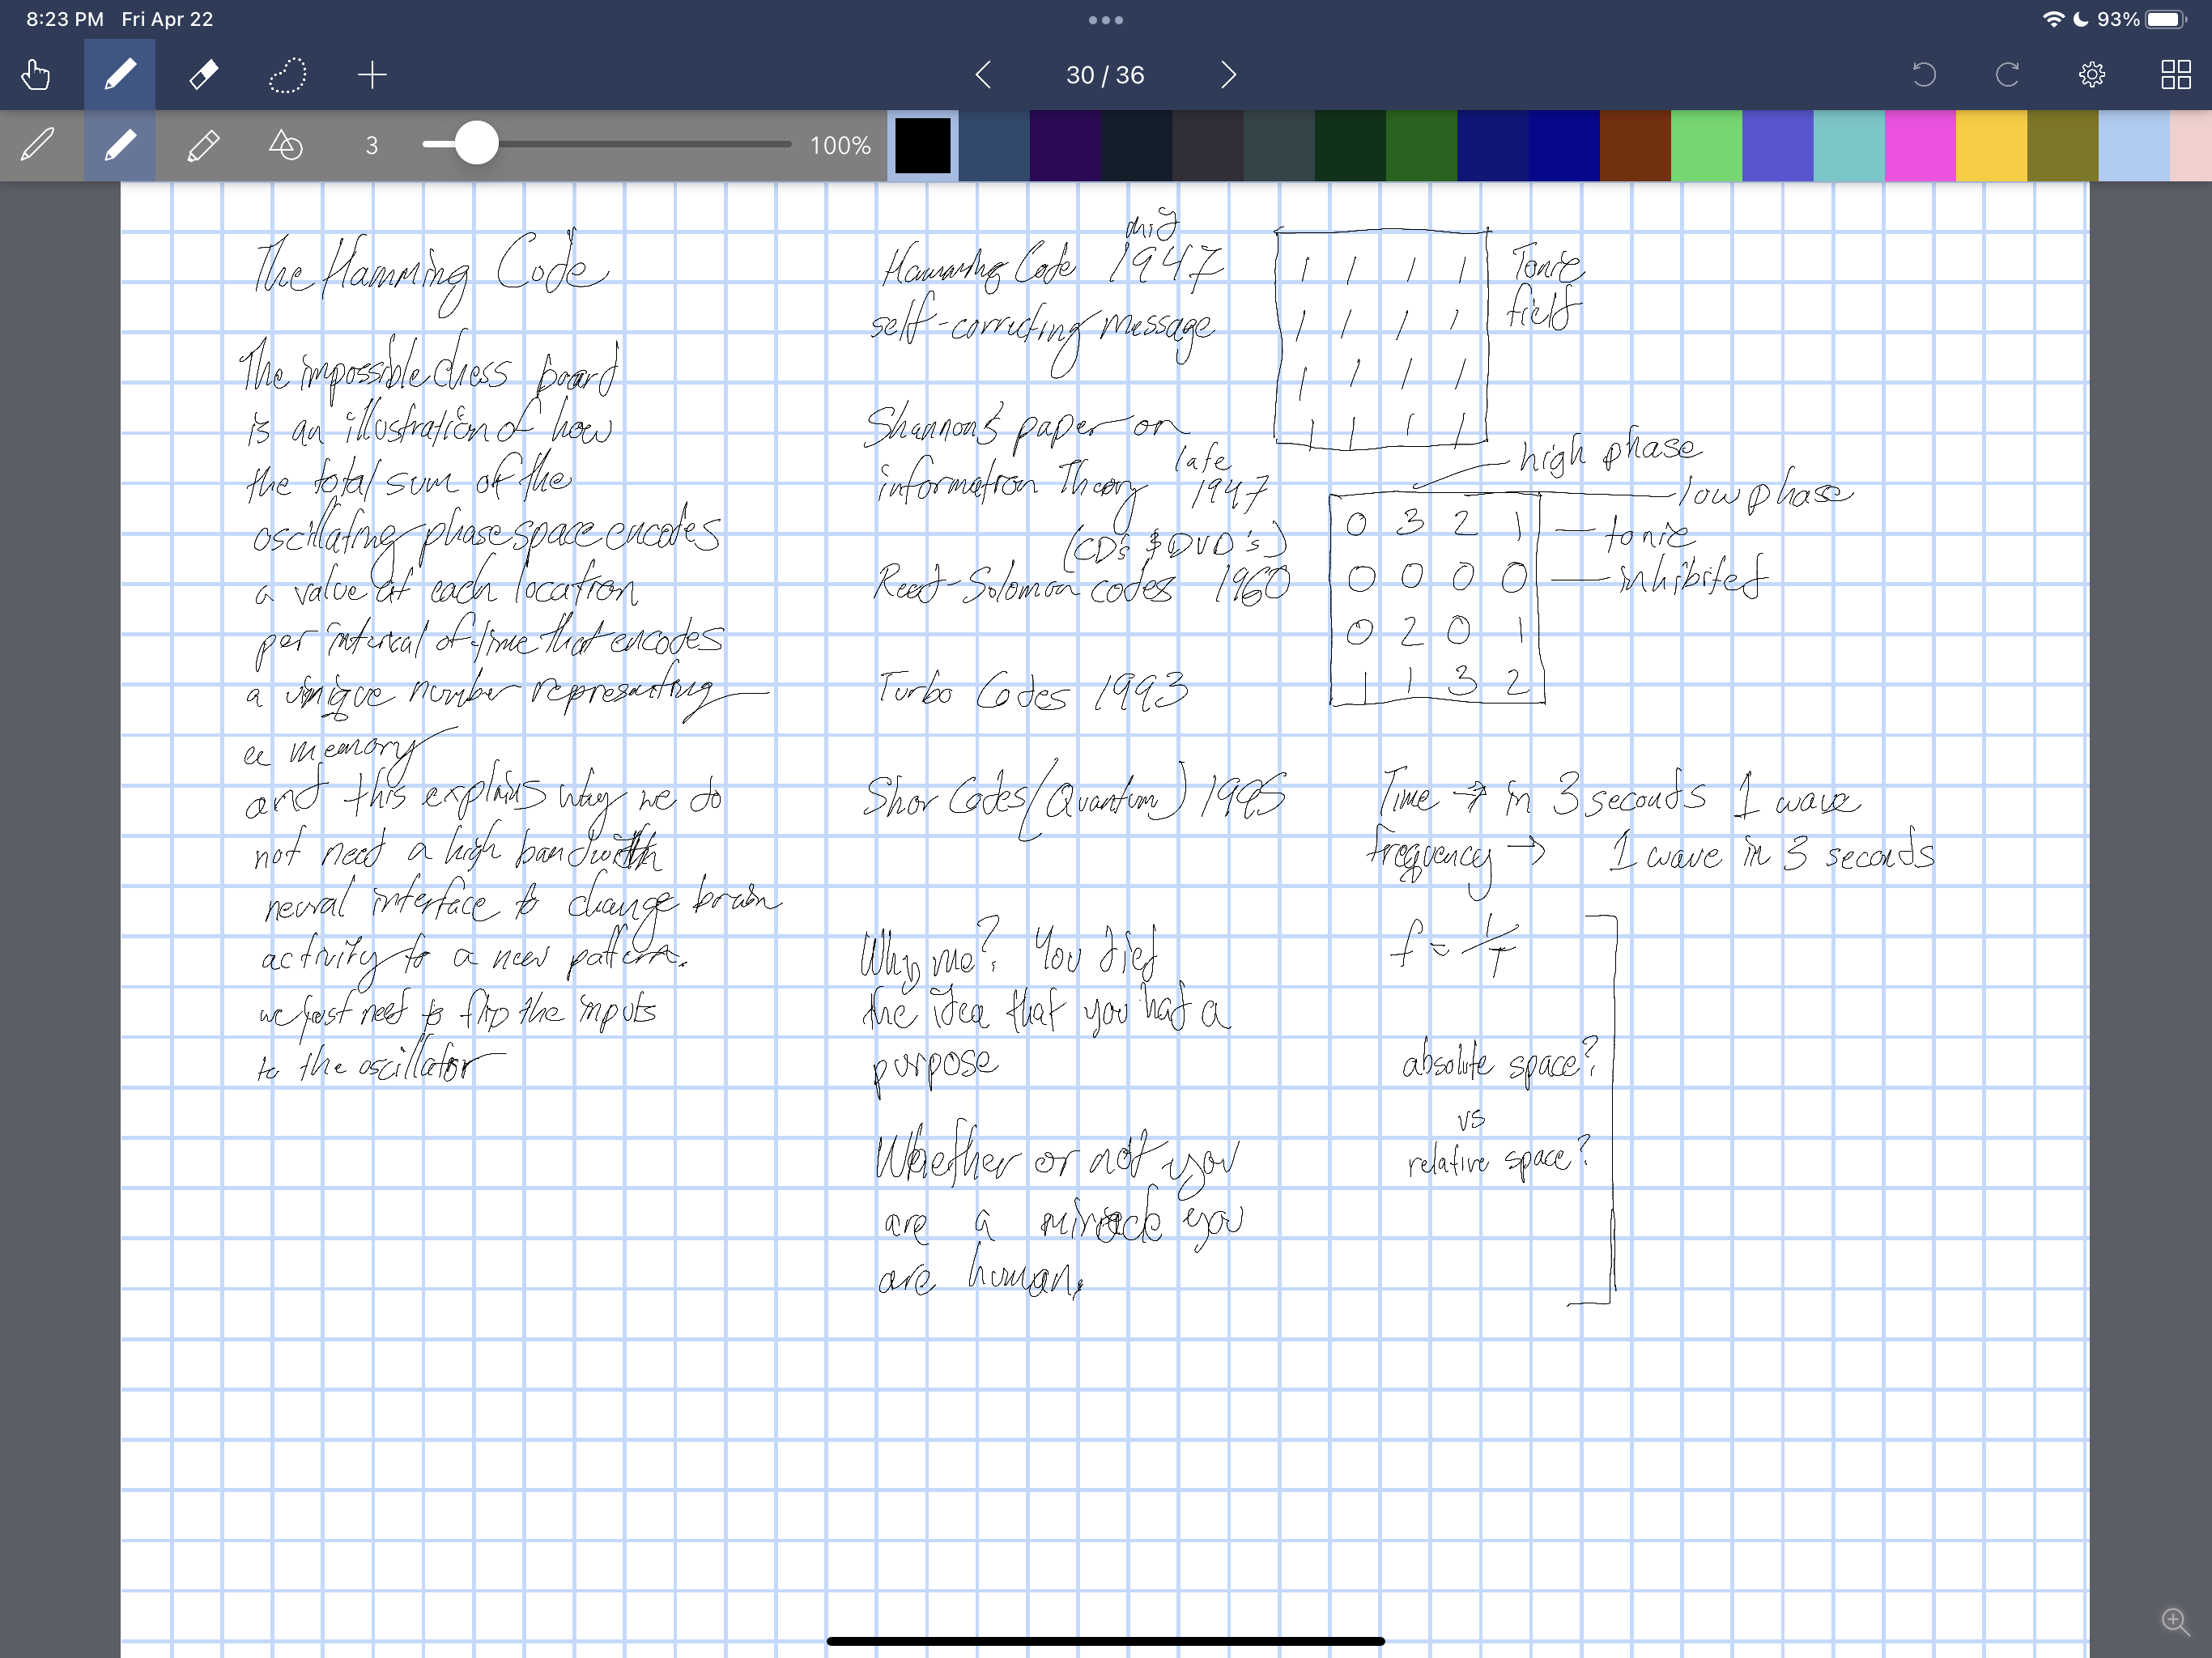 8:23 PM Fri Apr 22
93%
30 / 36
3
100%
The Hamming Code
The impossible chess board
is an illustration of how
the total sum of the
oscillating phase space encodes
a value at each location
per interval of time that encodes
a unique number representing
a memory
and this explains why we do
not need a high bandwith
neural interface to change brain
activity to a new pattern.
we just need to flip the inputs
to the oscillator
mid
Hamming Code 1947
self-correcting message
Shannon's paper on
late
information Theory 1947
(CD's & DVD's)
Reed-Solomon codes 1960
Turbo Codes 1993
Shor Codes (Quantum) 1995
Why me? You died
the idea that you had a
purpose
Whether or not you
are a miracle you
are human.
1 1 1 1 Tonic
field
1 1 1 1
1 1 1 1
1 1 1 1
high phase
low phase
0 3 2 1 — tonic
0 0 0 0 — inhibited
0 2 0 1
1 1 3 2
Time → in 3 seconds 1 wave
frequency → 1 wave in 3 seconds
f = 1/T
absolute space?
vs
relative space?